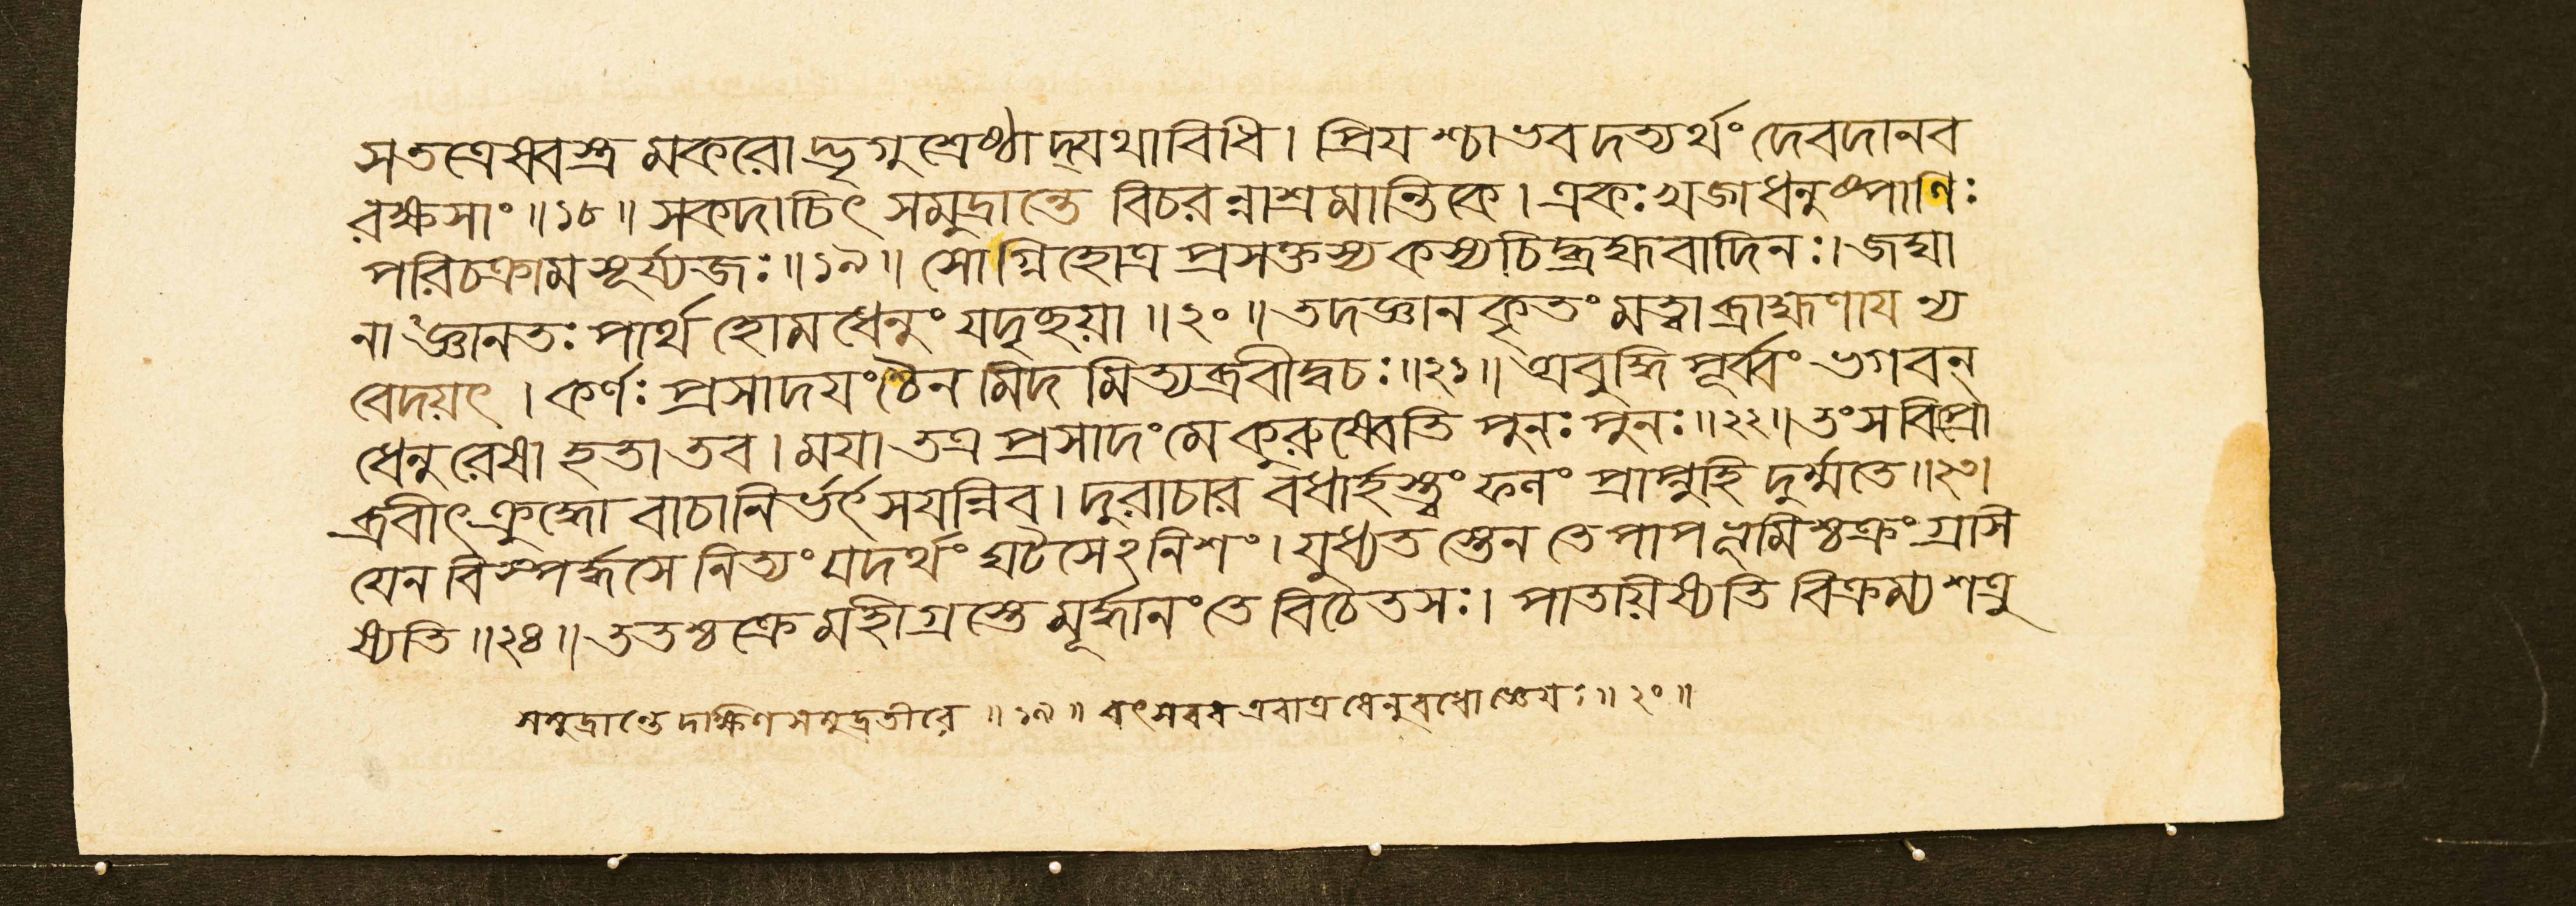 সতত্রেষ্বস্ত্র মকরো দ্ভৃগুশ্রেষ্ঠাদ্যথাবিধি। প্রিয শ্চাভব দত্যর্থং দেবদানব
রক্ষসাং॥১৮॥ সকদাচিৎ সমুদ্রান্তে বিচরন্নাশ্রমান্তিকে। একঃ খড্গধনুষ্পাণিঃ
পরিচক্রাম সূর্য্যজঃ॥১৯॥ সোগ্নিহোত্র প্রসক্তস্য কস্যচিদ্ব্রহ্মবাদিনঃ। জঘা
নাজ্ঞানতঃ পার্থ হোমধেনুং যদৃচ্ছয়া॥২০॥ তদজ্ঞানকৃতং মত্বা ব্রাহ্মণায ন্য
বেদয়ৎ। কর্ণঃ প্রসাদযংশ্চৈন মিদ মিত্যব্রবীদ্বচঃ॥২১॥ অবুদ্ধি পূর্ব্বং ভগবন্
ধেনু রেষা হতা তব। মযা তত্র প্রসাদং মে কুরুষ্বেতি পুনঃ পুনঃ॥২২॥ তং স বিপ্রো
ব্রবীৎ ক্রুদ্ধো বাচা নির্ভর্ৎসযন্নিব। দুরাচার বধার্হস্ত্বং ফলং প্রাপ্নুহি দুর্ম্মতে॥২৩।
যেন বিস্পর্দ্ধসে নিত্যং যদর্থং ঘটসেঽনিশং। যুধ্যত স্তেন তে পাপ ভূমিশ্চক্রং গ্রসি
ষ্যতি॥২৪॥ ততশ্চক্রে মহীগ্রস্তে মূর্দ্ধানং তে বিচেতসঃ। পাতয়িষ্যতি বিক্রম্য শত্রু
সমুদ্রান্তে দাক্ষিণ সমুদ্রতীরে॥১৯॥ বৎসবধ এবাত্র ধেনুবধো জ্ঞেযঃ॥২০॥